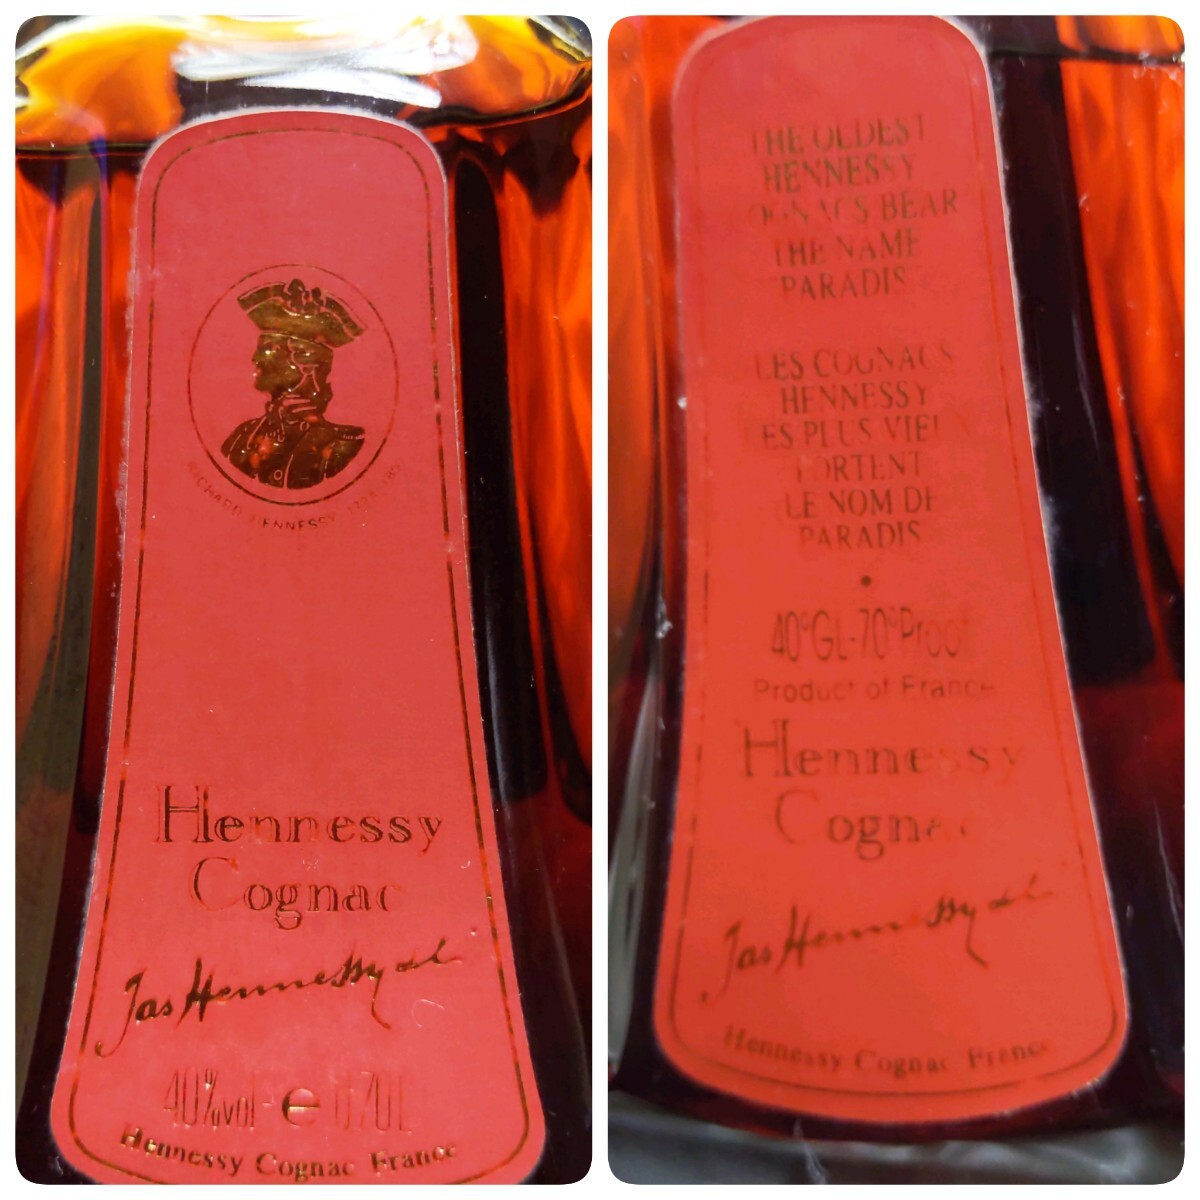 RICHARD HENNESSY
Hennessy
Cognac
Jas Hennessy & Co.
40%vol - e 0,70L
Hennessy Cognac France
THE OLDEST
HENNESSY
COGNACS BEAR
THE NAME
PARADIS
LES COGNACS
HENNESSY
LES PLUS VIEUX
PORTENT
LE NOM DE
PARADIS
•
40°GL-70°Proof
Product of France
Hennessy
Cognac
Jas Hennessy & Co.
Hennessy Cognac France